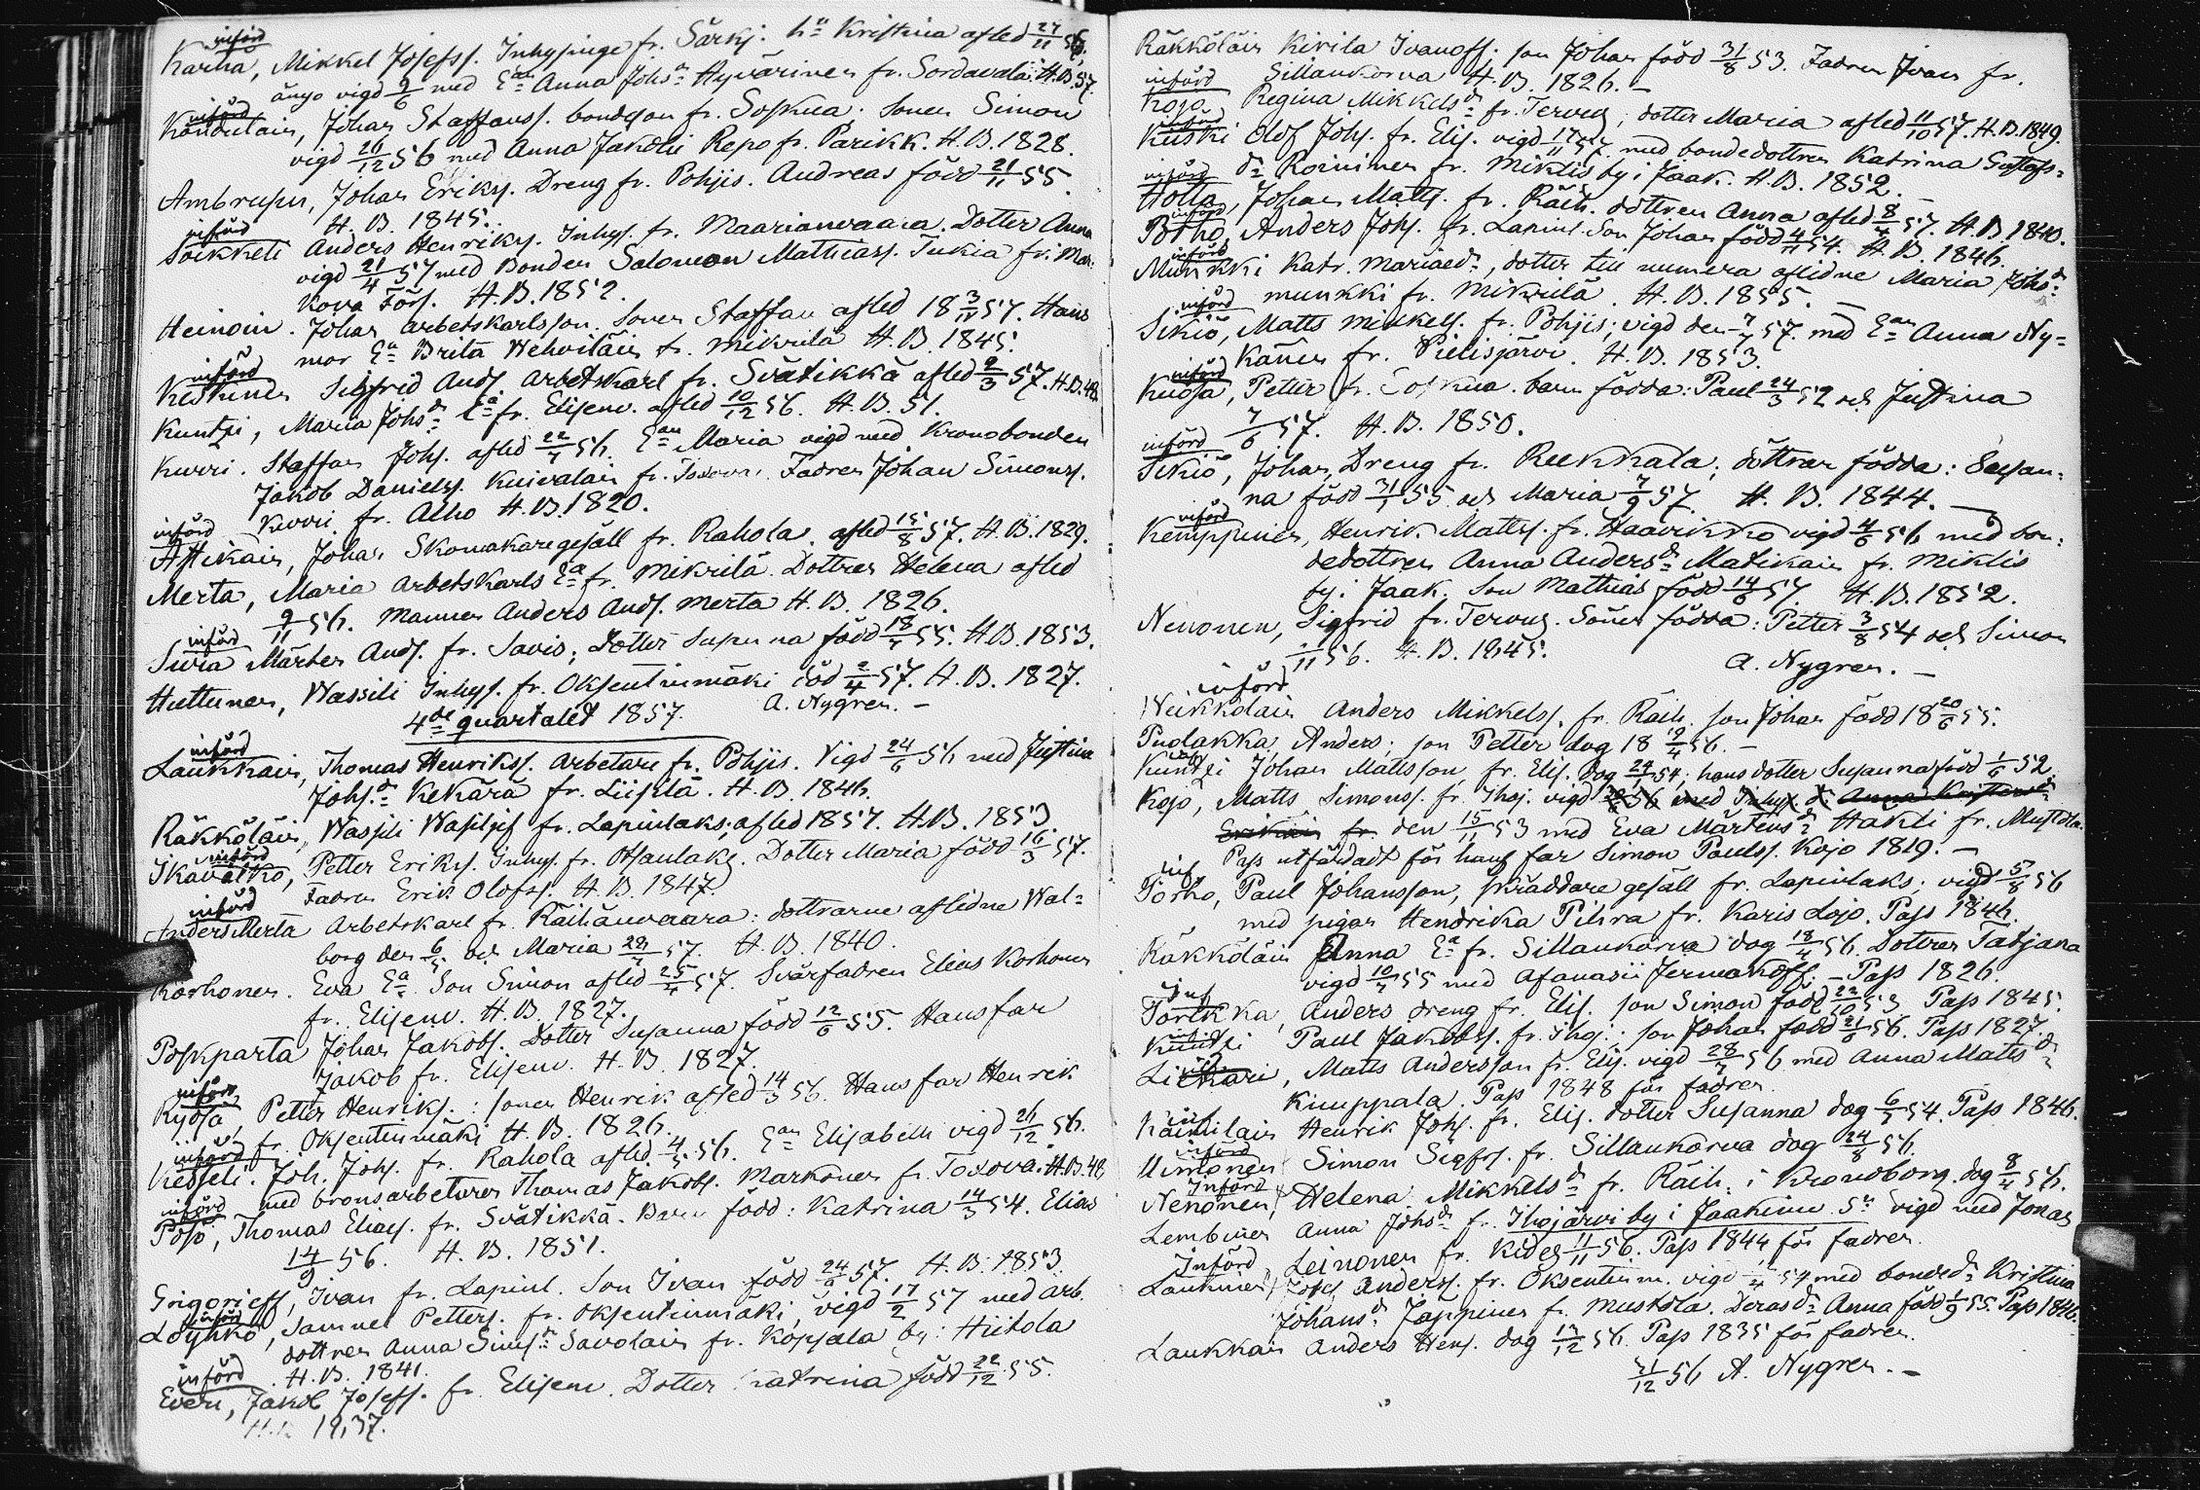 införd
Karha, Mikkel Josefss. Inhysinge fr. Särkj. hu Kristina afled 27/11 56,
ånyo vigd 9/6 med Ean Anna Johsdr Hyvärinen fr. Sordavala. H.B. 57.
införd
Kondulain, Johan Staffanss. bondeson fr. Soskua; sonen Simon
vigd 26/12 56 med Anna Jakobsd Repo fr. Parikk. H.B. 1828.
Ambrusin, Johan Erikss. Dreng fr. Pohjis. Andreas född 21/11 55.
H.B. 1845.
införd
Soikkeli Anders Henrikss. Inhys. fr. Maarianvaara. Dotter Anna
vigd 21/4 57 med Bonden Salomon Mathiass. Tukia fr. Man-
kova Förs. H.B. 1852.
Heinoin. Johan arbetskarlsson. Sonen Staffan afled 18 3/11 57. Hans
mor Ea Brita Wehviläin fr. Mikrilä H.B. 1845.
införd
Keskinen Sigfrid Ands. Arbetskarl fr. Svätikkä afled 2/3 57. H.B. 48.
Kuntzi, Maria Johsdr Ea fr. Elisenv. afled 10/12 56. H.B. 51.
Kurri. Staffan Johs. afled 22/7 56. Ean Maria vigd med Kronobonden
Jakob Danielss. Kuivalain fr. Fadren Johan Simonss.
Kurri fr. Alho H.B. 1820.
införd
Astikain, Johan Skomakaregesäll fr. Rahola. afled 15/8 57. H.B. 1829.
Merta, Maria Arbetskarls Ea fr. Mikrilä. Dottren Helena afled
9/11 56. Mannen Anders Ands. Merta H.B. 1826.
införd
Suria Mårten Ands. fr. Savis; Dotter Susanna född 18/7 55. H.B. 1853.
Huttunen, Wassili Inhys. fr. Oksentinmäki död 2/4 57. H.B. 1827.
4de quartalet 1857. A. Nygren. –
införd
Laukkain, Thomas Henrikss. Arbetare fr. Pohjis. Vigd 24/6 56 med Justina
Johsdr Kekärä fr. Liislä. H.B. 1846.
Räkköläin, Wassili Wasiljef fr. Lapinlaks; afled 1857. H.B. 1853
införd
Ikävalko, Petter Erikss. Inhys. fr. Otsanlaks. Dotter Maria född 16/3 57.
Fadren Erik Olofss. H.B. 1847.
införd
Anders Merta Arbetskarl fr. Räihänvaara: dottrarne aflidne Wal-
borg den 6/5 och Maria 22/7 57. H.B. 1840.
Korhonen. Eva Ea. Son Simon afled 25/4 57. Svärfadren Elias Korhonen
fr. Elisenv. H.B. 1827.
Poskparta Johan Jakobs. Dotter Susanna född 12/6 55. Hans far
Jakob fr. Elisenv. H.B. 1827.
införd
Ryösä, Petter Henriks.: sonen Henrik afled 14/3 56. Hans far Henrik
fr. Oksentinmäki H.B. 1826.
införd
Kesseli. Joh. Johs. fr. Rahola afled 4/5 56. Ean Elisabeth vigd 26/12 56.
med bronsarbetaren Thomas Jakobs. Markonen fr. Toxova. H.B. 48.
införd
Pösö, Thomas Eliass. fr. Svätikkä. Barn född: Katrina 14/3 54. Elias
14/9 56. H.B. 1851.
Grigorieff, Ivan fr. Lapinl. Son Ivan född 24/9 57. H.B. 1853.
införd
Löyhkö, Samuel Petterss. fr. Oksentinmäki, vigd 17/2 57 med arb.
dottren Anna Simsdr Savolain fr. Kopsala by i Hiitola
H.B. 1841.
införd
Even, Jakob Josefs. fr. Elisenv. Dotter Katrina född 22/12 55.
H.B. 1837.
Räkköläin Kirila Ivanoffs. son Johan född 31/8 53. Fadren Ivan fr.
Sillankorva H.B. 1826. –
införd
Kojo, Regina Mikkelsdr fr. Tervus, dotter Maria afled 11/10 57. H.B. 1849.
införd
Kuiski Olof Johs. fr. Elis. vigd 17/11 57 med bondedottren Katrina Gustafs-
dr Roininen fr. Miklis by i Jaak. H.B. 1852.
införd
Hotta, Johan Matts. fr. Räih. dottren Anna afled 8/4 57. H.B. 1840.
införd
Torho, Anders Johs. fr. Lapinl. Son Johan född 4/11 54. H.B. 1846.
införd
Munkki Katr. Mariaedr, dotter till numera aflidne Maria Johsdr
munkki fr. Mikrilä. H.B. 1855. –
införd
Sikiö, Matts Mikkels. fr. Pohjis; vigd den 7/7 57. med Ean Anna Ny-
känen fr. Pielisjärvi. H.B. 1853.
införd
Kuosa, Petter fr. Soskua. barn födda: Paul 24/3 52 och Justina
7/6 57. H.B. 1850.
införd
Sikiö, Johan, Dreng fr. Reekkala; döttrar födda: Susan-
na född 31/1 55 och Maria 7/9 57. H.B. 1844. –
införd
Kemppinen, Henrik Mattss. fr. Haavikko vigd 4/6 56 med bon-
dedottren Anna Andersdr Matikain fr. Miklis
by i Jaak. Son Mathias född 14/6 57 H.B. 1852.
Nenonen, Sigfrid fr. Tervus. Söner födda: Petter 3/8 54 och Simon
/11 56. H.B. 1845. A. Nygren. –
införd
Weikkolain Anders Mikkelss. fr. Räih. son Johan född 18 20/6 55.
Puolakka, Anders; son Petter dog 18 19/4 56. –
införd
Kuntzi Johan Mattsson, fr. Elis. dog 24/1 54; hans dotter Susanna född 1/6 52.
Kojo, Matts Simonss. fr. Ihoj. vigd 56 med Inhys. dr Anna
fr. den 15/11 53 med Eva Mårtensdr Hakli fr. Mustola.
Pass utfärdadt för hans far Simon Paulss. Kojo 1819. –
inf
Torho, Paul Johansson, skräddare gesäll fr. Lapinlaks; vigd 5/8 56
med pigan Hendrika Pihra fr. Karis Lojo. Pass 1846.
Räkköläin Anna Ea fr. Sillankorva dog 18/4 56. Dottren Tatjana
vigd 10/7 55 med Afanasii Jermakoffs. – Pass 1826.
inf
Torikka, Anders dreng fr. Elis. son Simon född 22/10 53 Pass 1845.
införd
Kuntzi Paul Jakobss. fr. Ihoj.; son Johan född 21/6 56. Pass 1827.
införd
Liikari, Matts Andersson fr. Elis. vigd 28/7 56 med Anna Mattsdr
Kimppala. Pass 1848 för fadren.
inf
Käinulain Henrik Johs. fr. Elis. dotter Susanna dog 6/7 54. Pass 1846.
införd
Uimonen Simon Sigfrs. fr. Sillankorva dog 24/8 56.
Införd
Nenonen, Helena Mikkelsdr fr. Räih. i Kronoborg. dog 8/4 56.
Lembinen Anna Johsdr fr. Ihojärvi by i Jaakimv. Sn vigd med Jonas
Leinonen fr. Kides 11/11 56. Pass 1844 för fadren.
Införd
Laukinen, Johs. Anderss. fr. Oksentinm. vigd /4 54 med bondedr Kristina
Johansdr Jäppinen fr. Mustola. Deras dr Anna född 1/9 55. Pass 1846.
Laukkain Anders Hens. dog 13/12 56. Pass 1835 för fadren.
31/12 56 A. Nygren. –